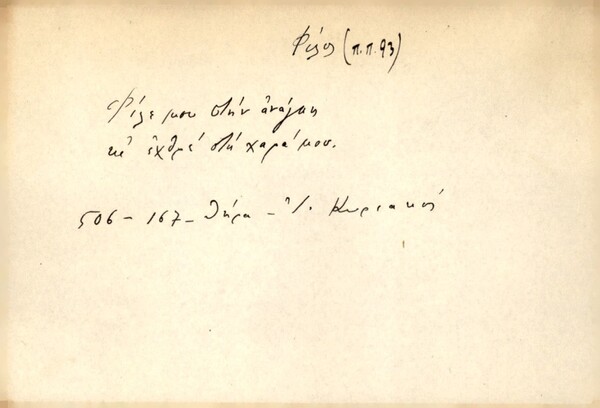 Φίλος (π.π. 93)
Φίλε μου στὴν ἀνάγκη
κι ἐχθρέ στὴ χαρά μου.
506 - 167 - Θήρα - Ἰ. Κυριακός